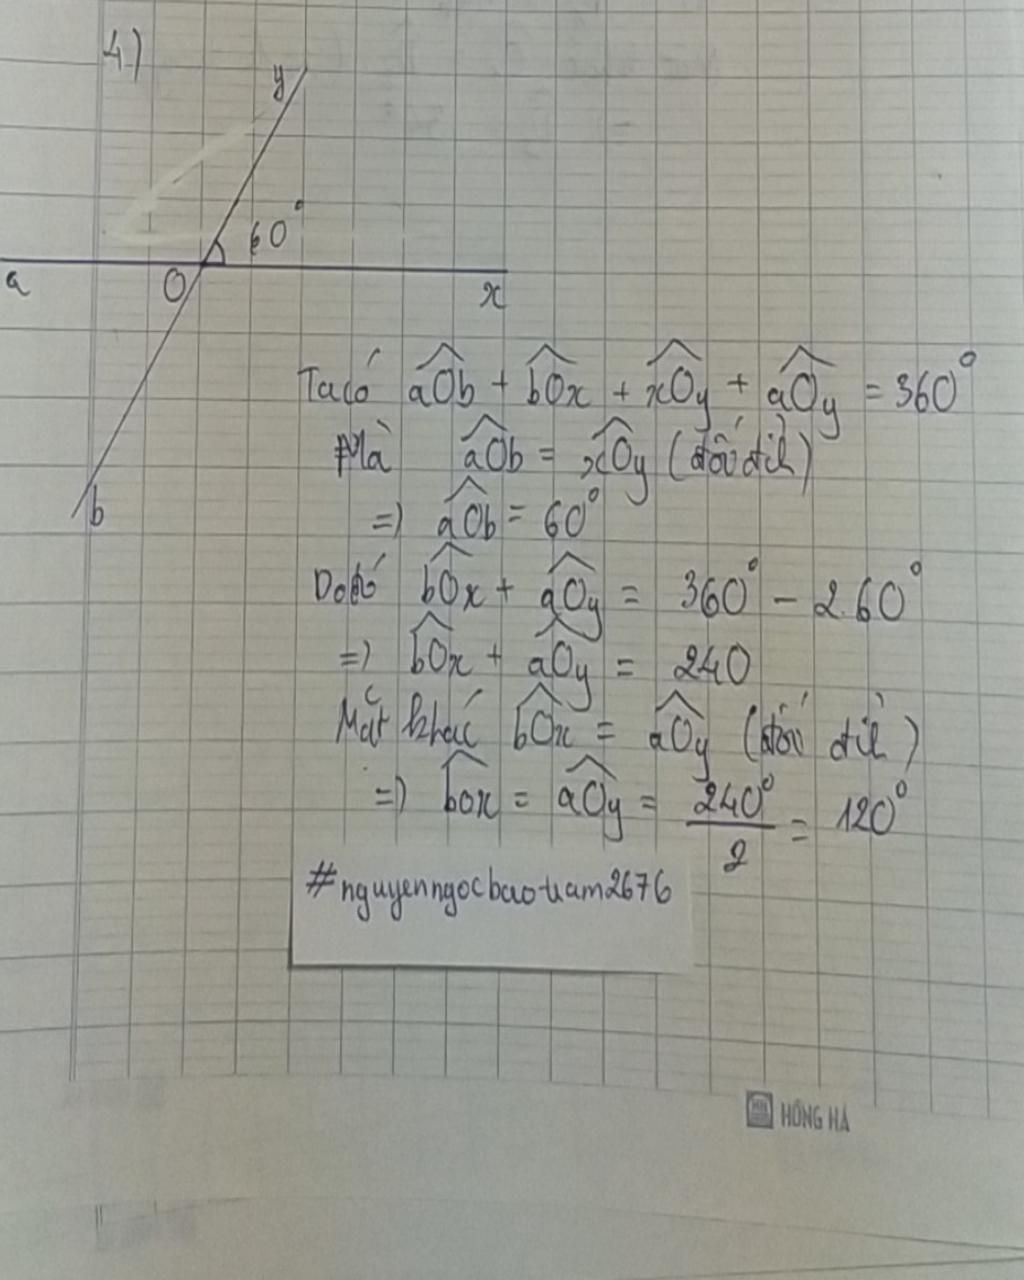 4.)
y
60°
a
O
x
b
Ta có aOb + bOx + xOy + aOy = 360°
Mà aOb = xOy (đối đỉnh)
=) aOb = 60°
Do đó bOx + aOy = 360° - 2.60°
=) bOx + aOy = 240
Mặt khác bOx = aOy (đối đỉnh)
=) bOx = aOy = 240°/2 = 120°
#nguyenngocbaotram2676
HỒNG HÀ